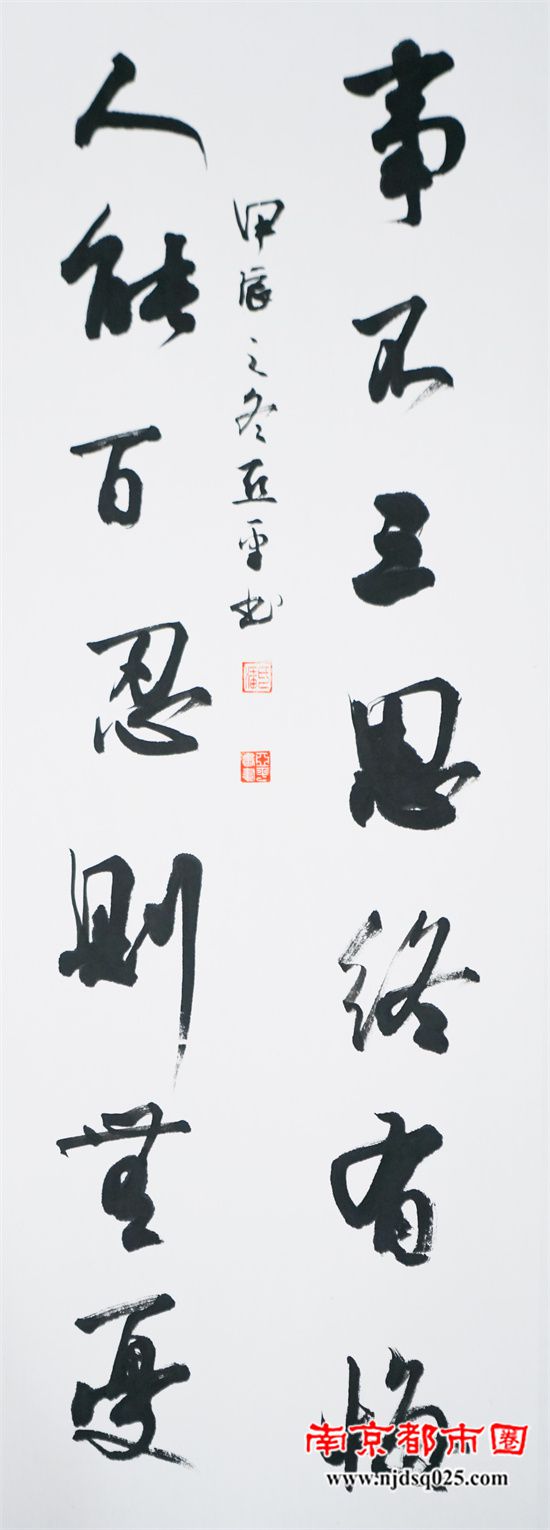 事不三思终有悔
人能百忍則無憂
甲辰之冬亚平书
南京都市圈
www.njdsq025.com